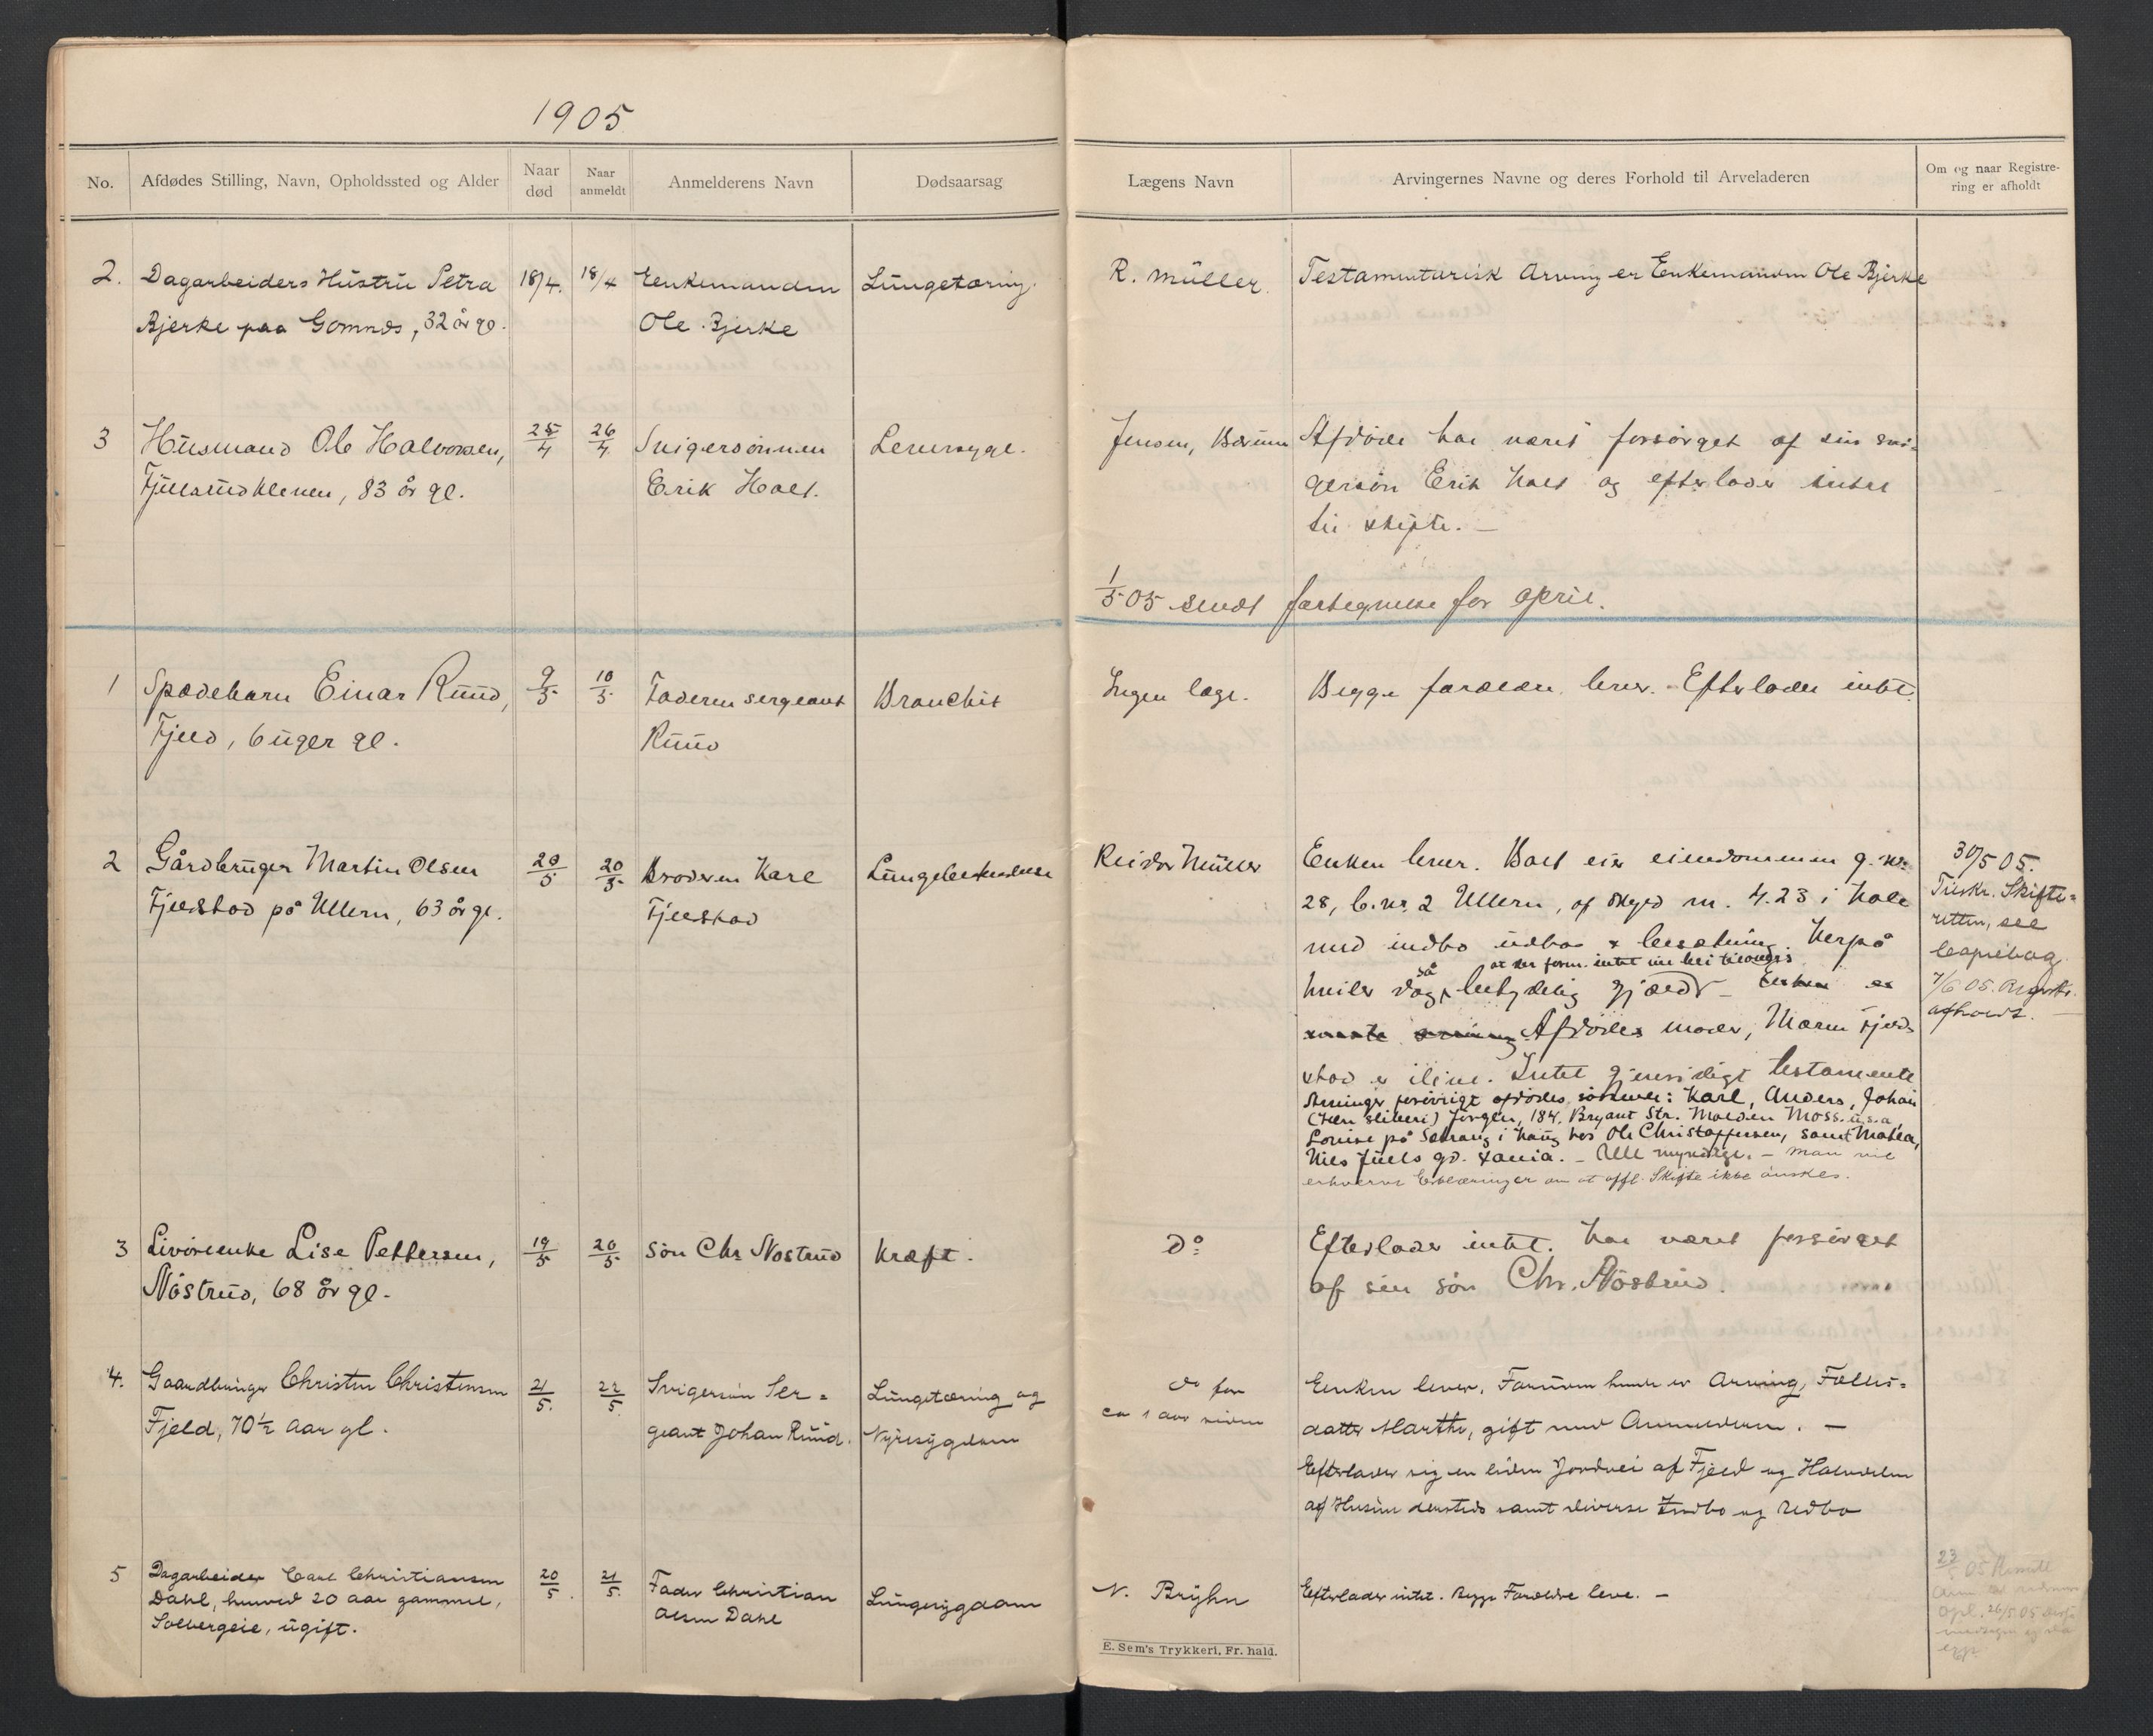 1905
No.
Afdødes Stilling, Navn, Opholdssted og Alder
Naar død
Naar anmeldt
Anmelderens Navn
Dødsaarsag
Lægens Navn
Arvingernes Navne og deres Forhold til Arveladeren
Om og naar Registre-
ring er afholdt
2. Dagarbeiders Hustru Petra 18/4. 18/4 Enkemanden Lungetæring. R. Müller. Testamentarisk Arving er Enkemanden Ole Bjerke
Bjerke paa Gomnes, 32 år gl. Ole Bjerke
3 Husmand Ole Halvorsen, 25/4 26/4 Svigersønnen Leversyge. Jensen, Bærum Afdøde har været forsørget af sin svi-
83 år gl. Erik Holt. gersøn Erik Holt og efterlader intet
til skifte. —
1/5 05 sendt fortegnelse for april.
1 Spædebarn Einar Ruud, 9/5 10/5 Faderen sergeant Bronchit Ingen læge. Begge forældre lever. Efterlader intet.
Fjeld, 6 uger gl. Ruud
2 Gårdbruger Martin Olsen 20/5 20/5 Broderen Karl Lungebetændelse Reidar Müller Enken lever. Boet eier eiendommen g. nr. 30/5 05.
Fjeldstad på Ullern, 63 år gl. Fjeldstad 28, b. nr. 2 Ullern, af skyld m. 4.23 i Hole Tilskr. Skifte-
med indbo udbo & besætning. Herpå retten, see
at der form. intet vil bli tilovers kopiebog
hviler dog så betydelig gjæld — Enken er 7/6 05. Registr.
næste arving Afdødes moder, Maren Fjeld- afholdt. —
stad er ilive. Intet gjensidigt testamente
Arvinger forøvrigt afdødes søskende: Karl, Anders, Johan
(Hen sliberi) Jørgen, 184, Bryant Str. Malden Moss. U.S.A.
Louise på i Haug hos Ole Christoffersen, samt Mathea,
Niels Juels gd. Xania. — Alle myndige. — Man vil
erhverve Erklæringer om at offl. Skifte ikke ønskes.
3 Livøreenke Lise Pettersen, 19/5 20/5 søn Chr. Nøstrud Kræft. Do Efterlader intet. Har været forsørget
Nøstrud, 68 år gl. af sin søn Chr. Nøstrud.
4. Gaardbruger Christen Christensen 21/5. 22/5. Svigersøn Ser- Lungetæring og do for Enken lever, Foruden hende er Arving, Fælles-
Fjeld, 70½ aar gl. geant Johan Ruud. Nyresygdom ca 1 aar siden datter Marthe, gift med Anmelderen. —
Efterlader sig en liden Jordvei af Fjeld og Halvdelen
af Husene dersteds samt diverse Indbo og Udbo
5 Dagarbeider Carl Christiansen 20/5. 21/5. Fader Christian Lungesygdom N. Bryhn Efterlader intet. Begge Forældre leve. — 23/5 05
Dahl, henved 20 aar gammel, Olsen Dahl
Solbergeie, ugift. 26/5 05
E. Sem's Trykkeri, Fr. hald.